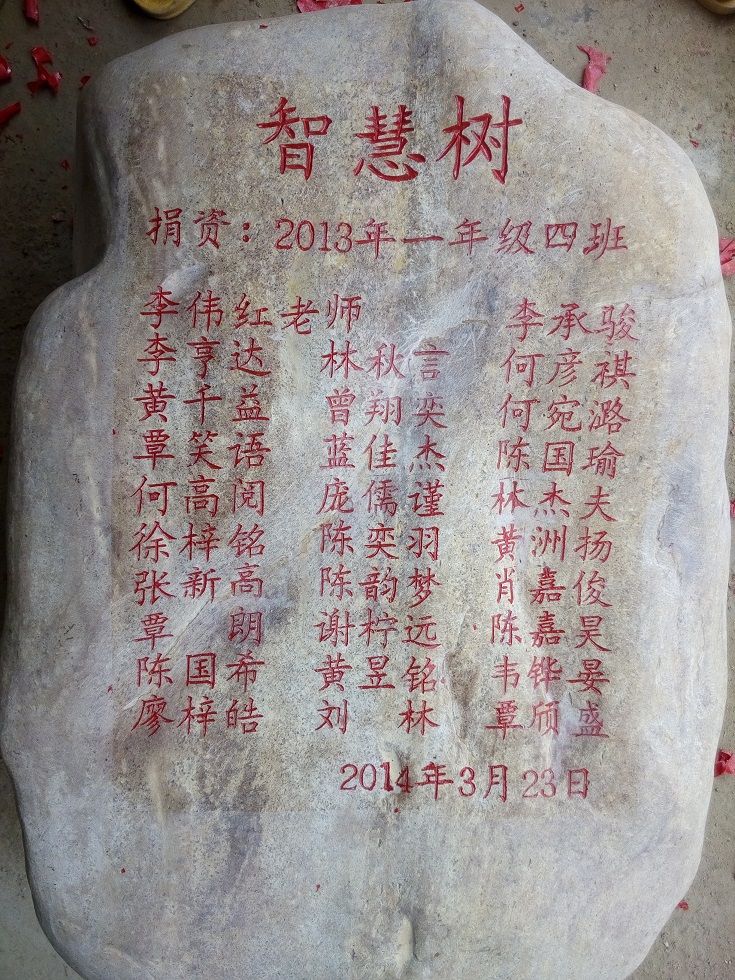 智慧树
捐资：2013年一年级四班
李伟红老师 李承骏
李亨达 林秋言 何彦祺
黄千益 曾翔奕 何宛潞
覃笑语 蓝佳杰 陈国瑜
何高阅 庞儒谨 林杰夫
徐梓铭 陈奕羽 黄洲扬
张新高 陈韵梦 肖嘉俊
覃朗 谢柠远 陈嘉昊
陈国希 黄昱铭 韦铧晏
廖梓皓 刘林 覃颀盛
2014年3月23日